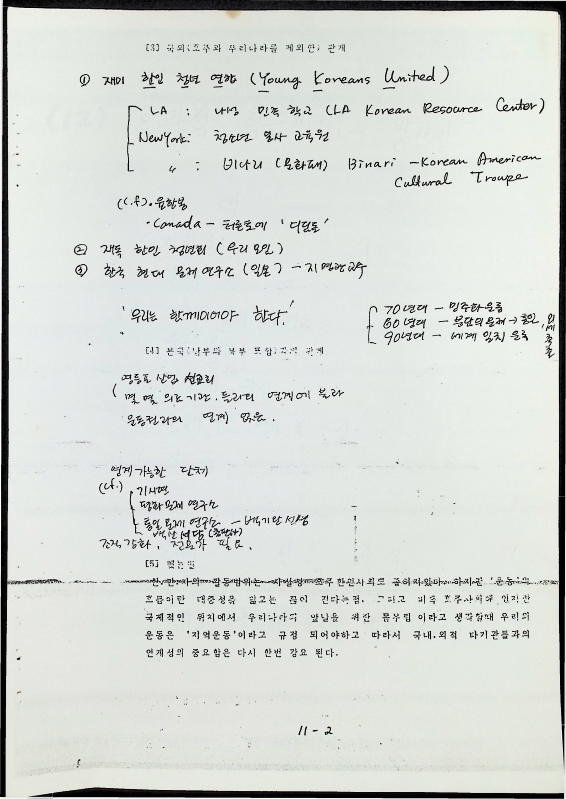 [3] 국외(호주와 우리나라를 제외한) 관계
① 재미 한인 청년 연합 (Young Koreans United)
LA : 나성 민족 학교 (LA Korean Resource Center)
New York: 청소년 봉사 교육원
〃 : 비나리 (문화패) Binari - Korean American
Cultural Troupe
(c.f). 유학생
· Canada - 터론토에 '디딤돌'
② 재독 한인 청년회 (우리 모인)
③ 한국 현대 문제 연구소 (일본) - 지명관교수
'우리는 함께이어야 한다.'
70년대 - 민주화운동
80년대 - 분단의문제 → 통일
90년대 - 세계 일치 운동
[4] 본국(남부와 북부 포함) 관계
영등포 산업 선교회
몇몇 의 기관.
운동권과의 연계 없음.
연계가능한 단체
(cf.) 기사연
평화문제 연구소
통일문제 연구소 - 백기완 선생
조직강화, 필요.
[5] 맺는말
흐름이란 대중성을 잃고는
국제적인 위치에서 우리나라의 앞날을 위한 몸부림 이라고 생각할때 우리의
운동은 '지역운동'이라고 규정 되어야하고 따라서 국내.외적 타기관들과의
연계성의 중요함은 다시 한번 강요 된다.
11-2